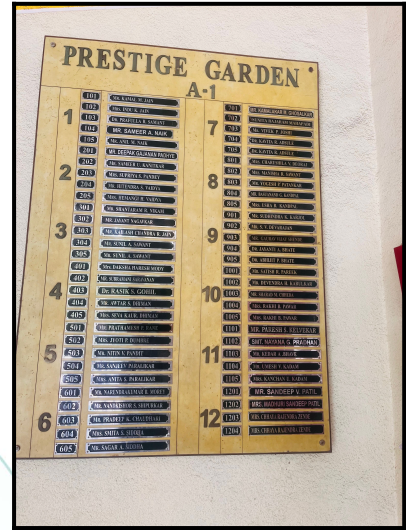 PRESTIGE GARDEN
A-1
1
101 MR. KAMAL M. JAIN
102 MRS. INDU K. JAIN
103 DR. PRAFULLA R. SAWANT
104 MR. SAMEER A. NAIK
105 MR. ANIL M. NAIK
2
201 MR. DEEPAK GAJANAN PADHYE
202 MR. SAMEER U. KANITKAR
203 MRS. SUPRIYA S. PANDEY
204 MR. HITENDRA S. VAIDYA
205 MRS. HEMANGI H. VAIDYA
3
301 MR. SHANTARAM R. NIKAM
302 MR. JAYANT NAGAVKAR
303 MR. KAILASH CHANDRA B. JAIN
304 MR. SUNIL A. SAWANT
305 MR. SUNIL A. SAWANT
4
401 MRS. DAKSHA HARESH MODY
402 MR. SUBRAMANI
403 Dr. RASIK S. GOHIL
404 MR. AWTAR S. DHIMAN
405 MRS. SEVA KAUR. DHIMAN
5
501 MR. PRATHAMESH P.
502 MRS. JYOTI P. DUMBRE
503 MR. NITIN V. PANDIT
504 MR. SANJEEV PARALIKAR
505 MRS. ANITA S. PARALIKAR
6
601 MR. NARENDRAKUMAR B. MOREY
602 MR. NANDKISHOR S. SHIPURKAR
603 MR. PRADEEP K. CHAUDHARI
604 MRS. SMITA S. SIDDHA
605 MR. SAGAR A. SIDDHA
7
701 MR. KAMALAKAR B. GHOSALKAR
702
703 MR. VIVEK P. JOSHI
704 DR. KAVITA H.
705 DR. KAVITA H.
8
801 MRS. CHARUSHILA V. DESSAI
802 MRS. MANISHA B. SAWANT
803 MR. YOGESH P. PATANKAR
804 MR. G.
805 MRS. USHA R. KANDPAL
9
901 MR. SUDHINDRA K. KAROLI
902 MR. S. V. DEVARAJAN
903
904 DR. JAYANT A. BHATE
905 DR. ABHIJIT P. BHATE
10
1001 MR. SATISH B. PAREEK
1002 MR. DEVENDRA H.
1003 MR.
1004 MRS. RAKHI B. PAWAR
1005 MRS. RAKHI B. PAWAR
11
1101 MR. PARESH S. KELVEKAR
1102 SMT. NAYANA G. PRADHAN
1103 MR. KEDAR A. BHAVE
1104 MR. UMESH V. KADAM
1105 MRS. KANCHAN V. KADAM
12
1201 MR. SANDEEP V. PATIL
1202 MRS. MADHURI SANDEEP PATIL
1203 MRS. CHHAYA RAJENDRA ZENDE
1204 MRS. CHHAYA RAJENDRA ZENDE